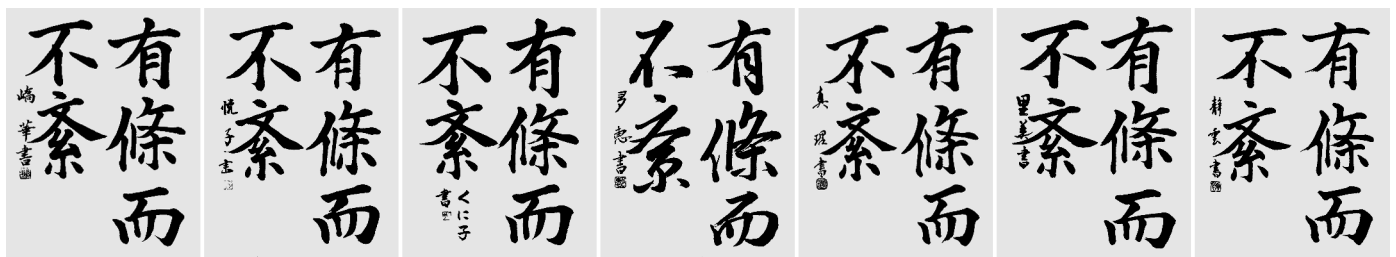 有條而
不紊
華書
有條而
不紊
悦子書
有條而
不紊
くに子
書
有條而
不紊
多恵書
有條而
不紊
真理書
有條而
不紊
里美書
有條而
不紊
静雲書